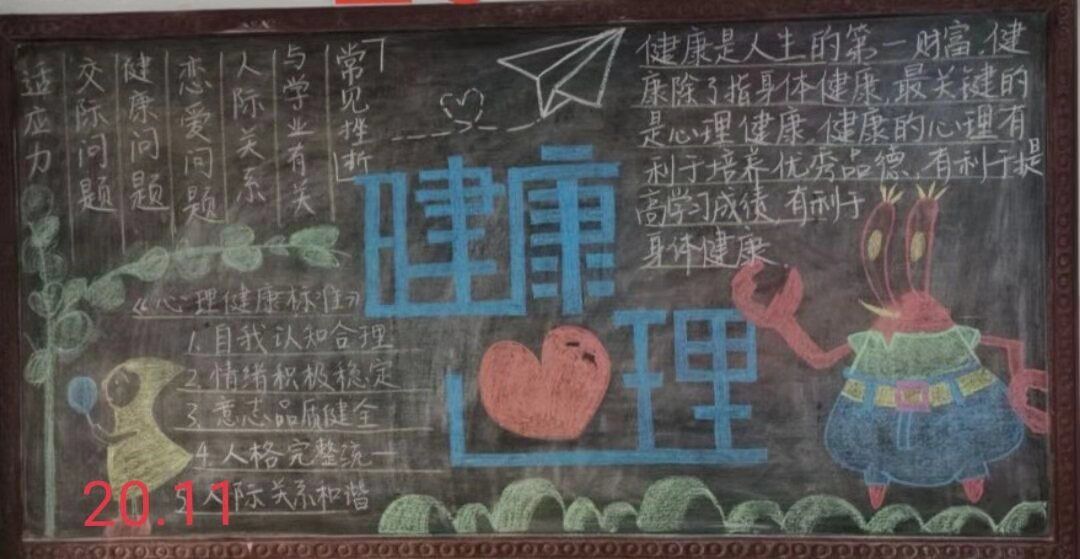 「常见挫断」
与学业有关
人际关系
恋爱问题
健康问题
交际问题
适应力
健康
心理
健康是人生的第一财富,健
康除了指身体健康,最关键的
是心理健康,健康的心理有
利于培养优秀品德,有利于提
高学习成绩,有利于
身体健康.
《心理健康标准》
1.自我认知合理
2.情绪积极稳定
3.意志品质健全
4.人格完整统一
5.人际关系和谐
20.11